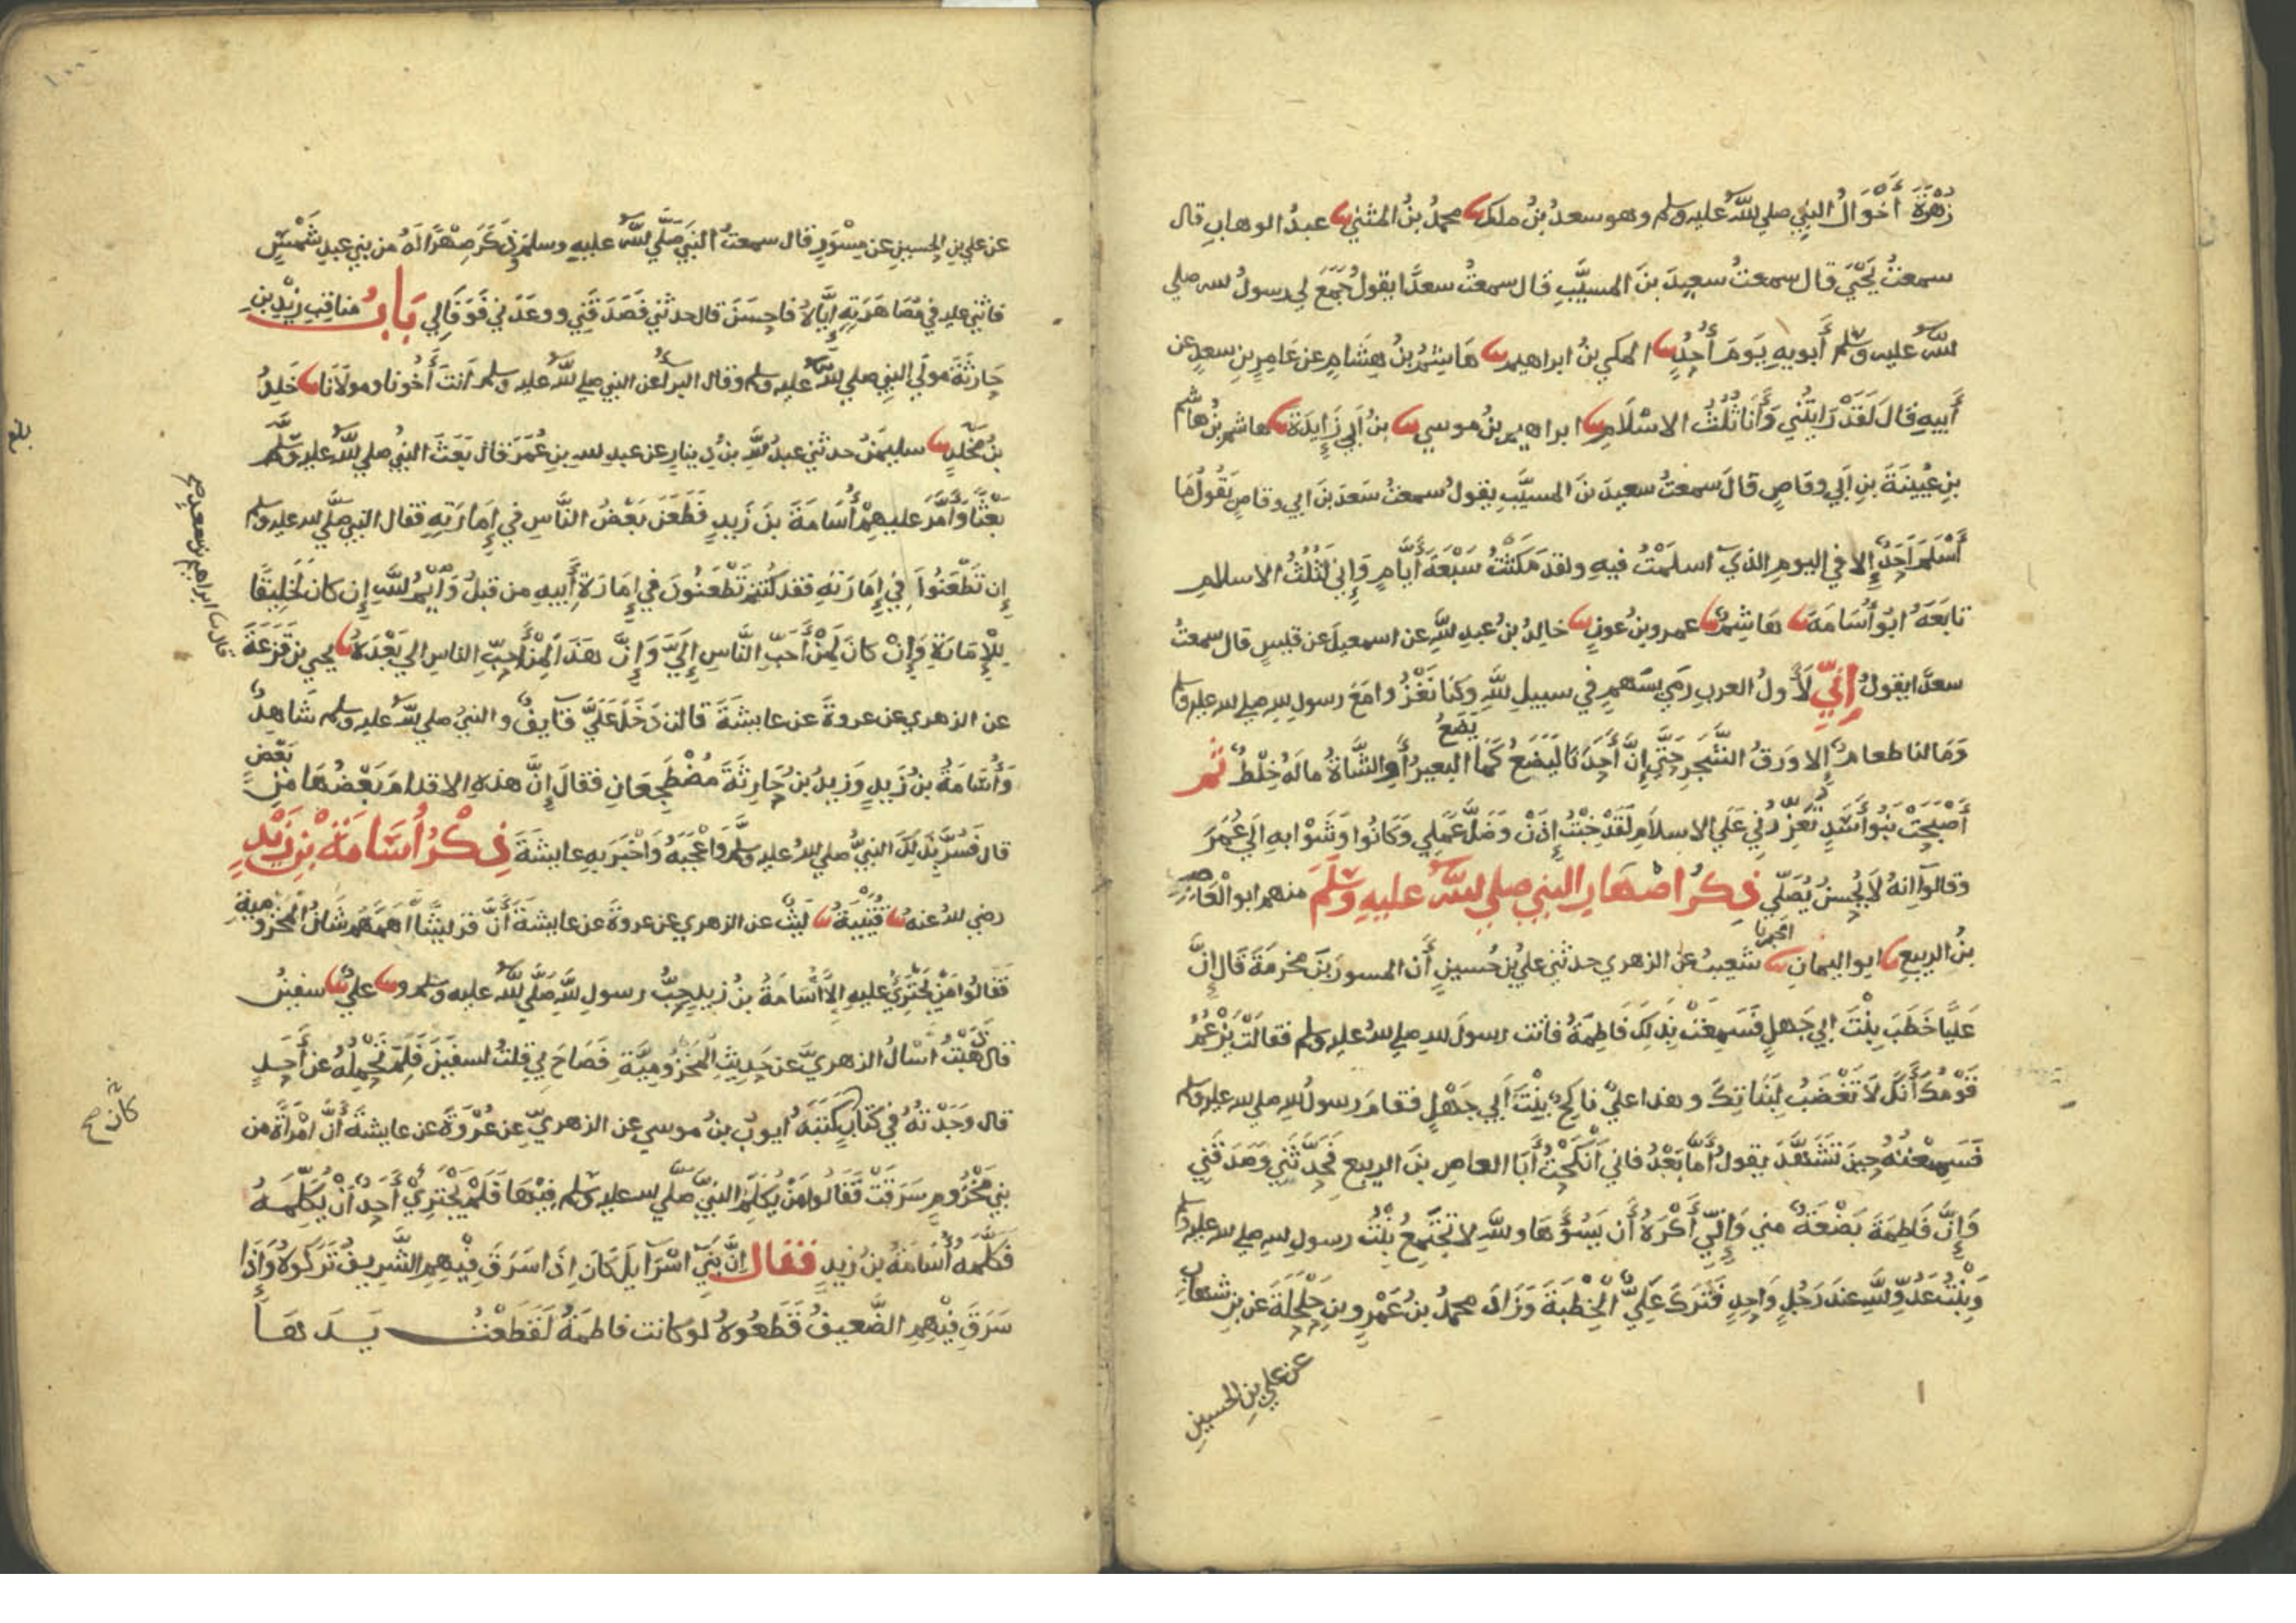 زُهْرَةَ أَخْوَالُ النبيِ صلي اللهُ عليه وسلم وهو سعدُ بنُ ملك نا محمدُ بنُ المثني نا عبدُ الوهابِ قال
سمعتُ يَحْيَي قال سمعتُ سعيدَ بنَ المسيَّبِ قال سمعتُ سعدًا يقولُ جَمَعَ لي رسولُ الله صلي
اللهُ عليه وسلم أبويهِ يَومَ أُحُدٍ نا المكي بنُ ابراهيم نا هَاشِمُ بنُ هِشَامٍ عن عَامِرِ بنِ سعدٍ عن
أَبيهِ قالَ لَقَدْ رَايتُني وَأَنا ثُلُثُ الاسْلَامِ نا ابراهيم بنُ موسي نا بنُ أَبي زَايِدَةَ نا هاشم بنُ هاشم
بنِ عُيينَةَ بنِ ابي وقاصٍ قالَ سمعتُ سعيدَ بنَ المسيَّبِ يقولُ سمعتُ سَعدَ بنَ ابي وقاصٍ يَقُولُ مَا
أَسْلَمَ أَحَدٌ إلا في اليومِ الذي اسلَمْتُ فيهِ ولقد مَكَثْتُ سَبْعَةَ أَيَّامٍ وَإِني لَثُلُثُ الاسلامِ
تابَعَهُ ابُو أُسَامَةَ نا هَاشِمٌ نا عمرو بنُ عونٍ نا خالدُ بنُ عبدِ اللهِ عن اسمعيلَ عن قيسٍ قال سمعتُ
سعدًا يقولُ إِنِّي لَأَولُ العربِ رَمي بسَهمٍ في سبيلِ اللهِ وكُنا نَغْزُوا مَعَ رسولِ اللهِ صلي الله عليه وسلم
يَضَعُ
وَمَا لنا طعامٌ إلا وَرَقُ الشَّجَرِ حَتَّي إنَّ أَحَدَنَا لَيَضَعُ كَمَا البعيرُ أَوِ الشَّاةُ مالَهُ خِلْطٌ ثم
أَصْبَحَتْ بَنُوا أَسَدٍ تُعَزِّرُني عَلَي الاسلَامِ لَقَدْ خِبْتُ إذَنْ وَضَلَّ عَمَلِي وَكَانُوا وَشَوْا بهِ الَي عُمَرَ
وقالوا إنهُ لَا يُحْسِنُ يُصَلِّي ذكرُ اصْهَارِ النبي صلي اللهُ عليهِ وَسَلَّمَ منهم ابو العَاصِ
بنُ الربيع نا ابو اليمانِ نا اخبرنا شعيبٌ عن الزهري حدثني عليُ بنُ حُسينٍ أَنَّ المسورَ بنَ مخرمَةَ قَالَ إِنَّ
عَليًا خَطَبَ بِنْتَ ابي جَهلٍ فَسَمِعَتْ بِذلِكَ فَاطِمَةُ فاتت رسولَ اللهِ صلي اللهُ عليه وسلم فقالَتْ يَزْعُمُ
قَوْمُكَ أَنَّكَ لَا تَغْضَبُ لِبَنَاتِكَ وهذا عليٌ ناكحٌ بِنْتَ أَبي جَهْلٍ فقامَ رسولُ اللهِ صلي الله عليه وسلم
فَسَمِعْتُهُ حِينَ تَشَهَّدَ يقولُ أَمَّا بَعْدُ فاني أَنْكَحْتُ أَبَا العاصِ بنَ الربيعِ فَحَدَّثَني وَصَدَقَني
وَإِنَّ فَاطِمَةَ بَضْعَةٌ مني وَإِنِّي أَكْرَهُ أَن يَسُوُهَا واللهِ لا تَجْتَمِعُ بِنْتُ رسولِ اللهِ صلي الله عليه وسلم
وَبِنْتُ عَدُوِّ اللهِ عندَ رَجُلٍ وَاحِدٍ فَتَرَكَ عَلِيٌّ الْخِطْبَةَ وَزَادَ محمدُ بنُ عَمْرِو بنِ حَلْحَلَةَ عن بنِ شهابٍ
عن علي بنِ الحسينِ
عن علي بنِ الحسينِ عن مِسْوَرٍ قال سمعتُ النبيَ صَلَّي اللهُ عليهِ وسلمَ وذَكَرَ صِهْرًا لَهُ من بني عبدِ شَمْسٍ
فاثني عليه في مُصَاهَرَتِهِ إِيَّاهُ فاحسَنَ قال حدثني فَصَدَقَني ووعَدَني فَوَفَالي بَابُ مناقبِ زيدِ بنِ
حَارِثَةَ مولَي النبي صلي اللهُ عليه وسلم وقال البرأُ عن النبي صلي اللهُ عليه وسلم أَنتَ أَخُونا ومولَانَا نا خَلِدُ
بنُ مَخْلَدٍ نا سليمنُ حدثني عبدُ اللهِ بنُ دِينارٍ عن عبدِ اللهِ بنِ عُمَرَ قال بَعَثَ النبيُ صلي اللهُ عليه وسلم
بَعْثًا وَأَمَّرَ عليهِمْ أُسَامَةَ بنَ زَيدٍ فَطَعَنَ بَعْضُ النَّاسِ في إِمَارَتِهِ فقال النبي صلَّي الله عليه وسلم
إن تَطْعَنُوا في إِمَارَتهِ فقد كُنتم تَطْعَنُونَ في إِمَارَةِ أَبيهِ من قبلُ وَايْمُ اللهِ إن كانَ لَخَلِيقًا
لِلْإِمَارَةِ وَإِنْ كانَ لَمِنْ أَحَبِّ النَّاسِ إِلَيَّ وَإِنَّ هَذَا لَمِنْ أَحَبِّ الناسِ الي بَعْدَهُ نا يحيي بن قَزَعَةَ
قال نا ابراهيم بن سعد صح
عن الزهري عن عروةَ عن عايشةَ قالت دَخَلَ عَلَيَّ قَايفٌ والنبيُ صلي اللهُ عليه وسلم شَاهِدٌ
وَأُسَامَةُ بنُ زَيدٍ وَزيدُ بنُ حَارِثَةَ مُضْطَجِعَانِ فقالَ إِنَّ هذهِ الاقدامَ بَعْضُهَا مِن بَعْضٍ
قال فَسُرَّ بذَلِكَ النبيُّ صلي اللهُ عليه وسلم وَأَعْجَبَهُ وَاخْبَرَ بهِ عايشةَ ذِكْرُ أُسَامَةَ بْنِ زَيْدٍ
رضي اللهُ عنهُ نا قُتَيْبَةُ نا لَيثٌ عن الزهري عن عروةَ عن عايشةَ أَنَّ قريشًا أَهَمَّهُمْ شَانُ المخزُومِيةِ
فَقَالُوا مَنْ يَجْتَرِيُ عليهِ إلا أُسَامَةُ بنُ زيدٍ حِبُّ رسولِ اللهِ صَلَّي اللهُ عليهِ وسلم ونا عليٌ نا سفينُ
قال ذَهَبْتُ أَسْالُ الزهريَّ عن حَدِيثِ الْمَخْزُومِيَّةِ فَصَاحَ بِي قلتُ لسفينَ فَلَمْ تَحْمِلْهُ عن أَحَدٍ
قال وَجَدْتهُ في كِتَابٍ كَتَبَهُ أيوبُ بنُ موسي عن الزهريِّ عن عُرْوَةَ عن عايشةَ أَنَّ امْرَأَةً من
بني مَخْزُومٍ سَرَقَتْ فَقَالُوا مَنْ يُكَلِّمُ النبيَّ صَلَّي الله عليه وسلم فِيْهَا فَلَمْ يَجْتَرِيْ أَحَدٌ أَنْ يُكَلِّمَهُ
كان صح
فَكَلَّمَهُ أُسَامَةُ بنُ زيدٍ فقال إنَّ بَنِي اسْرَايلَ كَانَ إذَا سَرَقَ فِيْهِمِ الشَّرِيفُ تَرَكُوهُ وَإِذَا
سَرَقَ فِيْهِمِ الضَّعيفُ قَطَعُوهُ لو كانت فاطمَةُ لَقَطَعْتُ يَدَهَا
بلغ